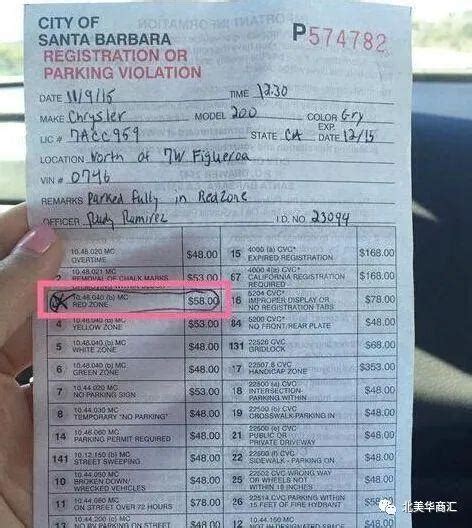 CITY OF
SANTA BARBARA
REGISTRATION OR
PARKING VIOLATION
P574782
DATE 11/9/15 TIME 1230
MAKE Chrysler MODEL 200 COLOR Gry
LIC # 7ACC959 STATE CA EXP. DATE 12/15
LOCATION North of 7W Figueroa
VIN # 0746
REMARKS Parked fully in Red Zone
OFFICER Rudy Ramirez I.D. NO. 23094
10.48.020 MC OVERTIME $48.00 15 4000 (a) CVC* EXPIRED REGISTRATION $168.00
2 10.48.021 MC REMOVAL OF CHALK MARKS $53.00 67 4000.4(a) CVC* CALIFORNIA REGISTRATION REQUIRED $168.00
10.48.040 (b) MC RED ZONE $58.00 16 5204 CVC* IMPROPER DISPLAY OR NO REGISTRATION TABS $78.00
4 10.48.040 (b) MC YELLOW ZONE $53.00 84 5200 CVC* NO FRONT/REAR PLATE $48.00
5 10.48.040 (b) MC WHITE ZONE $48.00 131 22526 CVC GRIDLOCK $68.00
6 10.48.040 (b) MC GREEN ZONE $48.00 17 22507.8 CVC HANDICAP ZONE $353.00
7 10.44.020 MC NO PARKING SIGN $53.00 18 22500 (a) CVC INTERSECTION-PARKING WITHIN $48.00
8 10.44.030 MC TEMPORARY "NO PARKING" $48.00 19 22500 (b) CVC CROSSWALK-PARKING IN $48.00
14 10.46.060 MC PARKING PERMIT REQUIRED $48.00 21 22500 (e) CVC PUBLIC OR PRIVATE DRIVEWAY $48.00
141 10.12.150 (b) MC STREET SWEEPING $48.00 22 22500 (f) CVC SIDEWALK - PARKING ON $48.00
10 10.44.050 MC BROKEN DOWN/ WRECKED VEHICLES $48.00 25 22502 CVC WRONG WAY OR WHEELS NOT WITHIN 18 INCHES $48.00
11 10.44.060 MC ON STREET OVER 72 HOURS $78.00 26 22514 CVC PARKING WITHIN 15 FEET OF FIRE HYDRANT
13 10.44.200 MC $48.00 12
北美华商汇